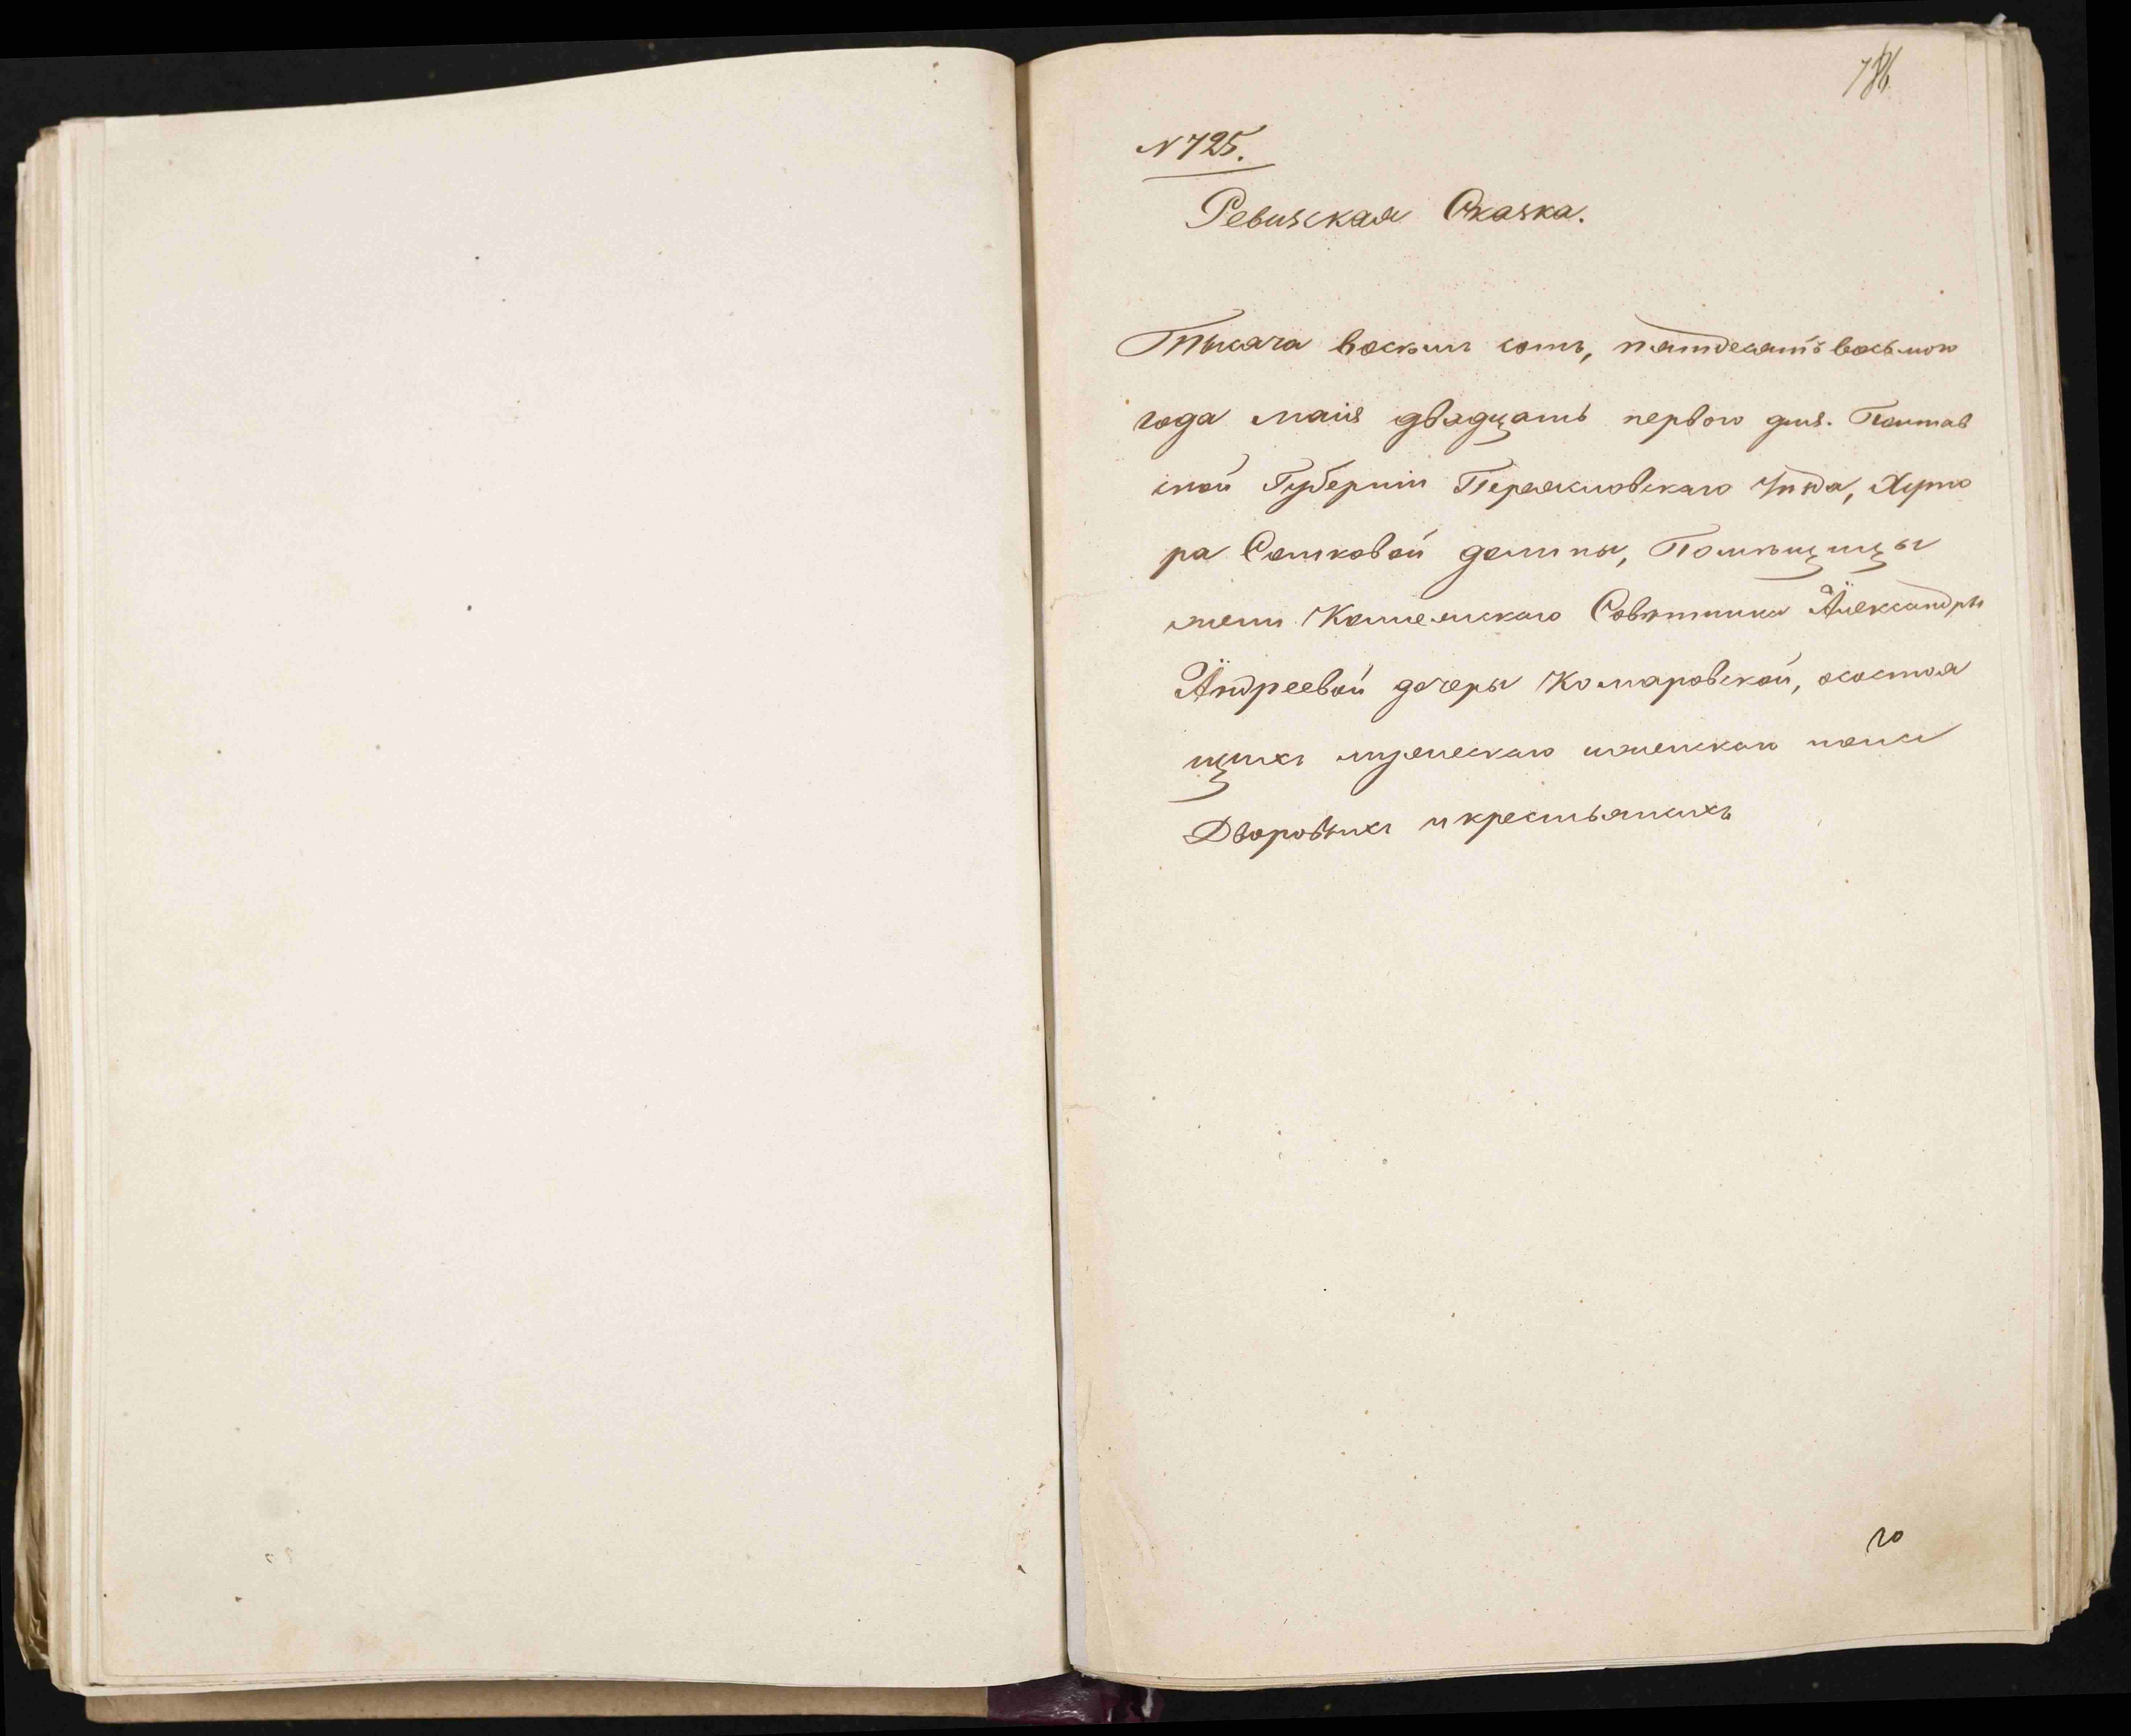 N 725.
Ревизская Сказка.
Тысяча восѣмъ сотъ, пятдесятъ восьмого
года маія двадцать первого дня. Полтав
ской Губерніи Переяславскаго Уѣзда, Хуто
ра Сомковой долины, Помѣщицы
жены Колежскаго Совѣтника Александры
Андреевой дочеры Комаровской, осостоя
щихъ мужескаго иженскаго пола
Дворовыхъ икрестьянахъ
20